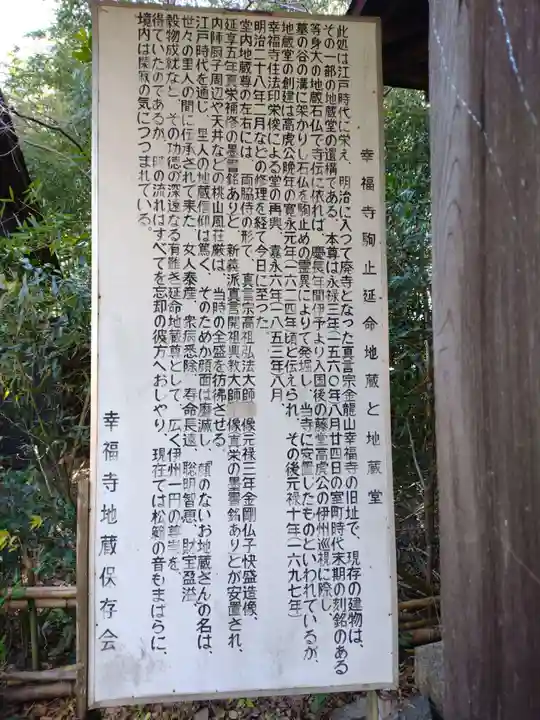 幸福寺駒止延命地蔵と地蔵堂
此処は江戸時代に栄え、明治に入って廃寺となった真言宗金龍山幸福寺の旧址で、現存の建物は、
その一部の地蔵堂の遺構である。本尊は永禄三年(一五六〇年)八月廿四日の室町時代末期の刻銘のある
等身大の地蔵石仏で寺伝に依れば、慶長年間伊予より入国後の藤堂高虎公の伊州巡視に際し、
墓の谷の溝に架かりし石仏を駒止めの霊異によりて発掘し、当寺に安置したものといわれているが、
地蔵堂の創建は高虎公晩年の寛永元年(一六二四年)頃と伝えられ、その後元禄十年(一六九七年)
幸福寺住法印栄俊による堂の再興、嘉永六年(一八五三年)八月
明治二十八年二月などの修理を経て今日に至った。
堂内地蔵尊の左右には、両脇侍の形で、真言宗高祖弘法大師 像元禄三年金剛仏子快盛造像、
延享五年真栄補修の墨書銘ありと、新義派真言開祖興教大師 像宣栄の墨書銘ありとが安置され、
内陣厨子周辺や天井などの桃山風荘厳は、当時の全盛を彷彿させる。
江戸時代を通じ、里人の地蔵信仰は篤く、そのためか顔面は磨滅し、顔のないお地蔵さんの名は、
世々の里人の間に伝承されて来た。女人泰産、衆病悉除、寿命長遠、聡明智恵、財宝盈溢、
穀物成就など、その功徳の深遠なる有難き延命地蔵尊として、広く伊州一円の尊崇を
得ていたのであるが、時の流れはすべてを忘却の彼方へおしやり、現在では松籟の音もまばらに、
境内は閑寂の気につつまれている。
幸福寺地蔵保存会